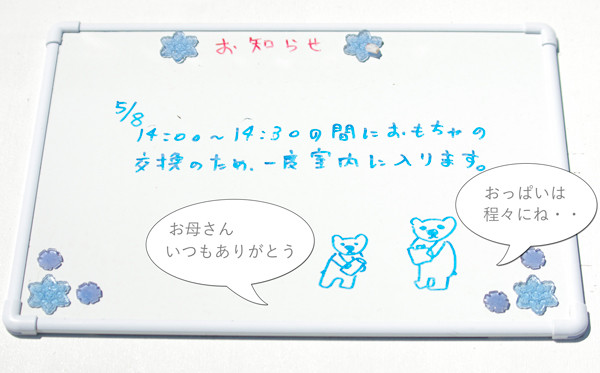 お知らせ
5/8
14:00〜14:30の間におもちゃの
交換のため、一度室内に入ります。
お母さん
いつもありがとう
おっぱいは
程々にね・・